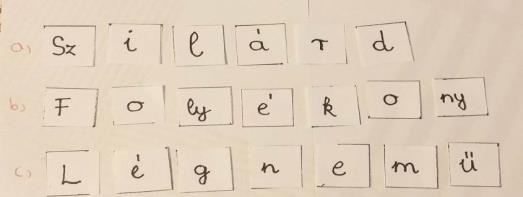 a) Sz i l á r d
b) F o ly é k o ny
c) L é g n e m ü